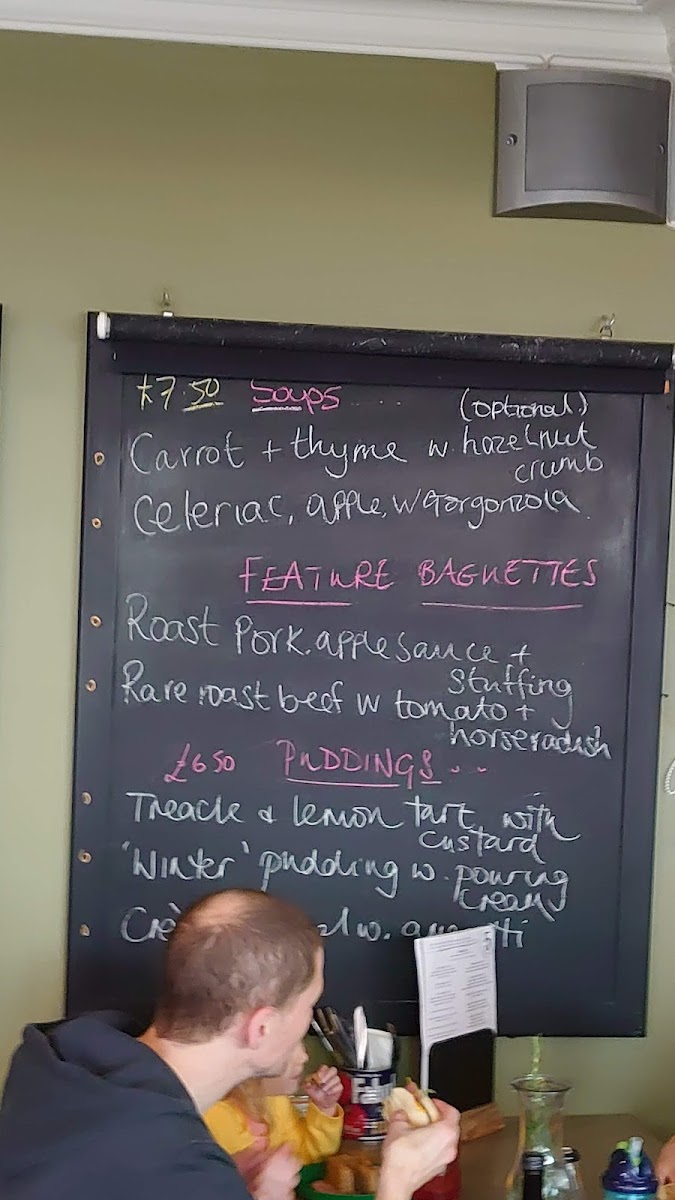 £7.50 Soups ..... (optional)
Carrot + thyme w. hazelnut
crumb
Celeriac, apple, w Gorgonzola.
FEATURE BAGUETTES
Roast Pork. apple sauce +
stuffing
Rare roast beef w tomato +
horseradish
£6.50 PUDDINGS...
Treacle & lemon tart with
custard
'Winter' pudding w. pouring
cream
w.